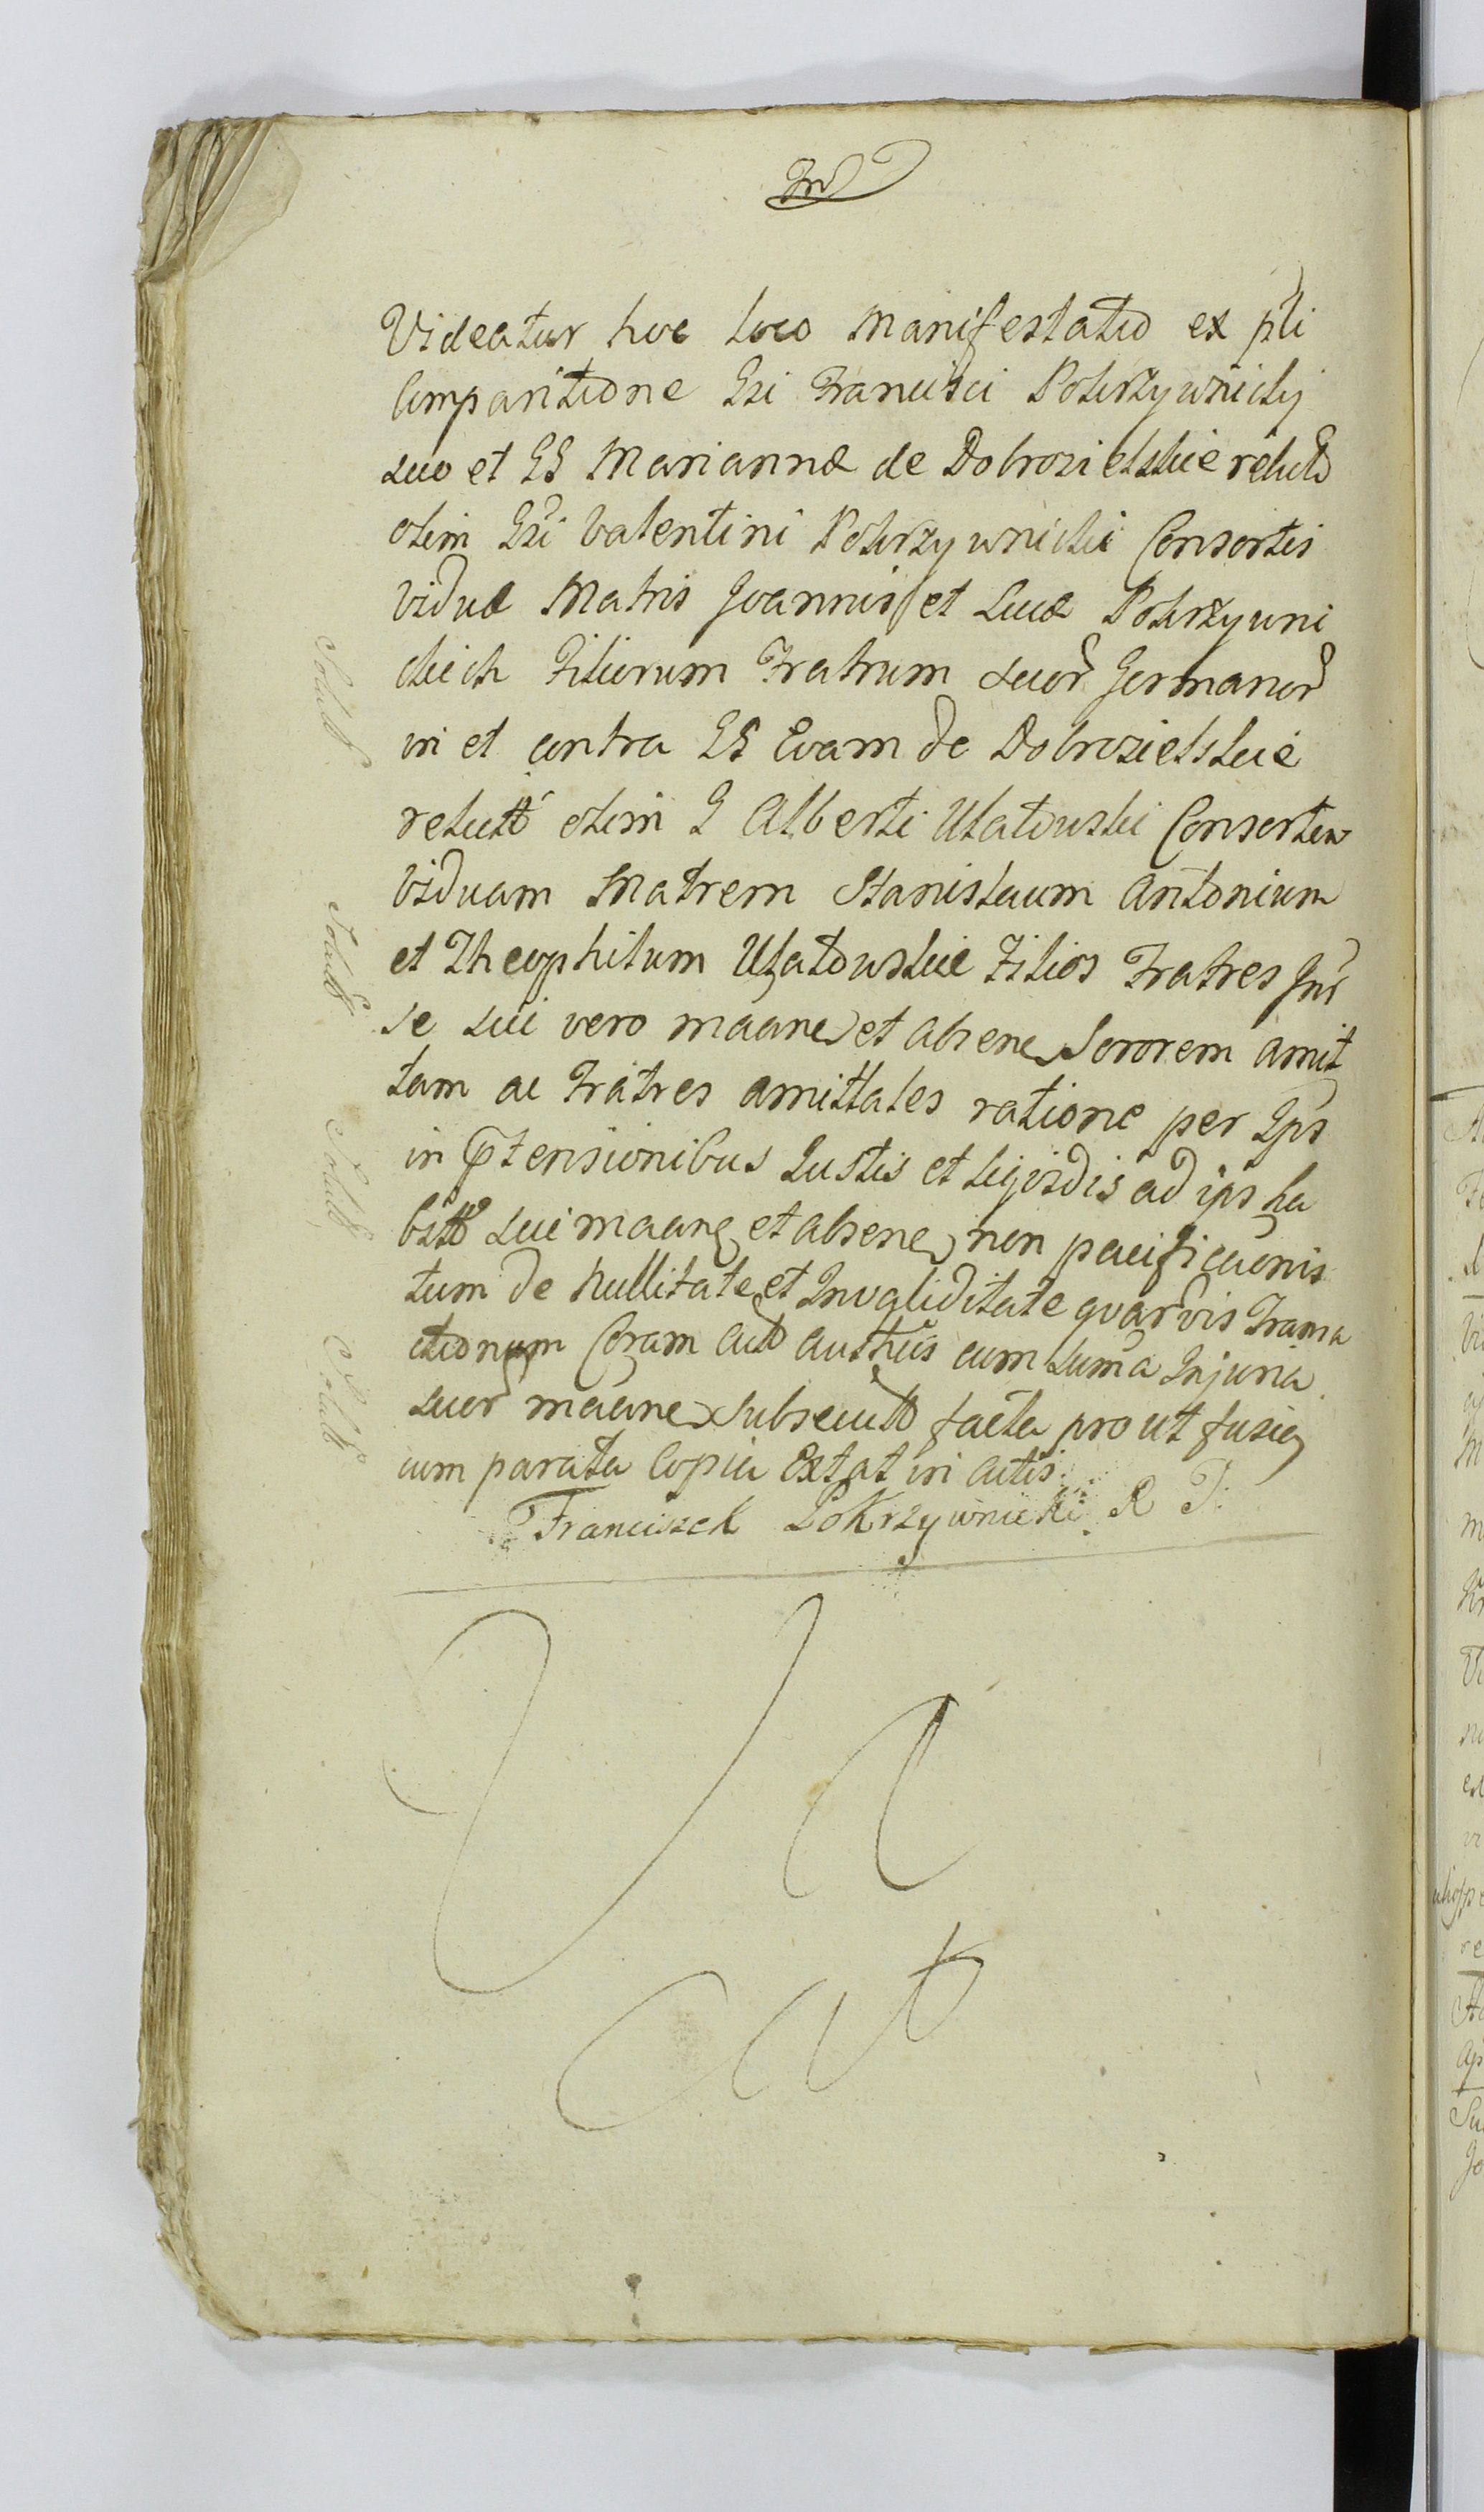 Videatur hoc loco Manifestatio ex pli
Comparitione Gsi Francisci Pokrzywnickij
suo et GS Mariannæ de Dobrozielskie relictæ
olim Gsi Valentini Pokrzywnicki Consortis
Viduæ Matris Joannis et Lucæ Pokrzywni
ckich Filiorum Fratrum suor Germanor
in et contra GS Evam de Dobrozielskie
relictã olim G Alberti Ulatowski Consortem
Viduam Matrem Stanislaum Antonium
et Theophilum Ulatowskie Filios Fratres Grs
se sui vero maane et absene Sororem Amit
tam ac Fratres amittales ratione per Ips
in ptensionibus Iustis et liqvidis ad ips ha
bitt sui maane et absene non pacificaonis
tum de Nullitate et Invaliditate qvarvis Transa
ctionum Coram Actis authcis cum suma Injuria
suor maane subsecutt facta prout fusiq
cum parata Copia Extat in Actis
Franciszek Pokrzywnicki R
Va
cat
Solut
Solut
Solut
Solut